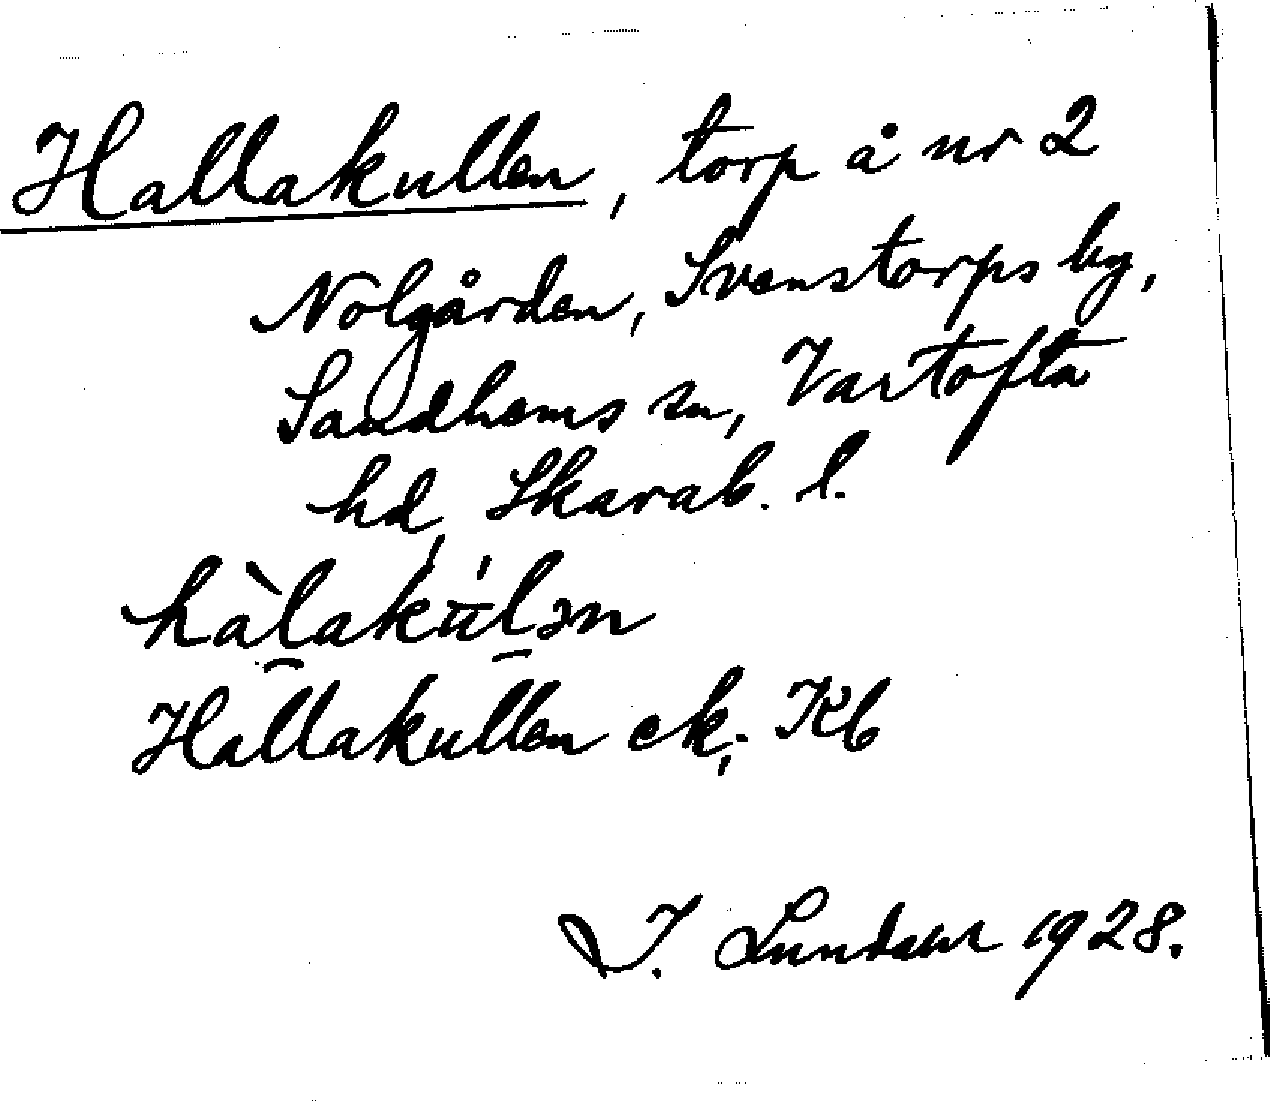 Hallakullen, torp å nr 2
Nolgården, Svenstorps by,
Sandhems sn, Vartofta
hd, Skarab. l.
hàlakúlən
Hallakullen ek; Kb
J. Lundahl 1928.